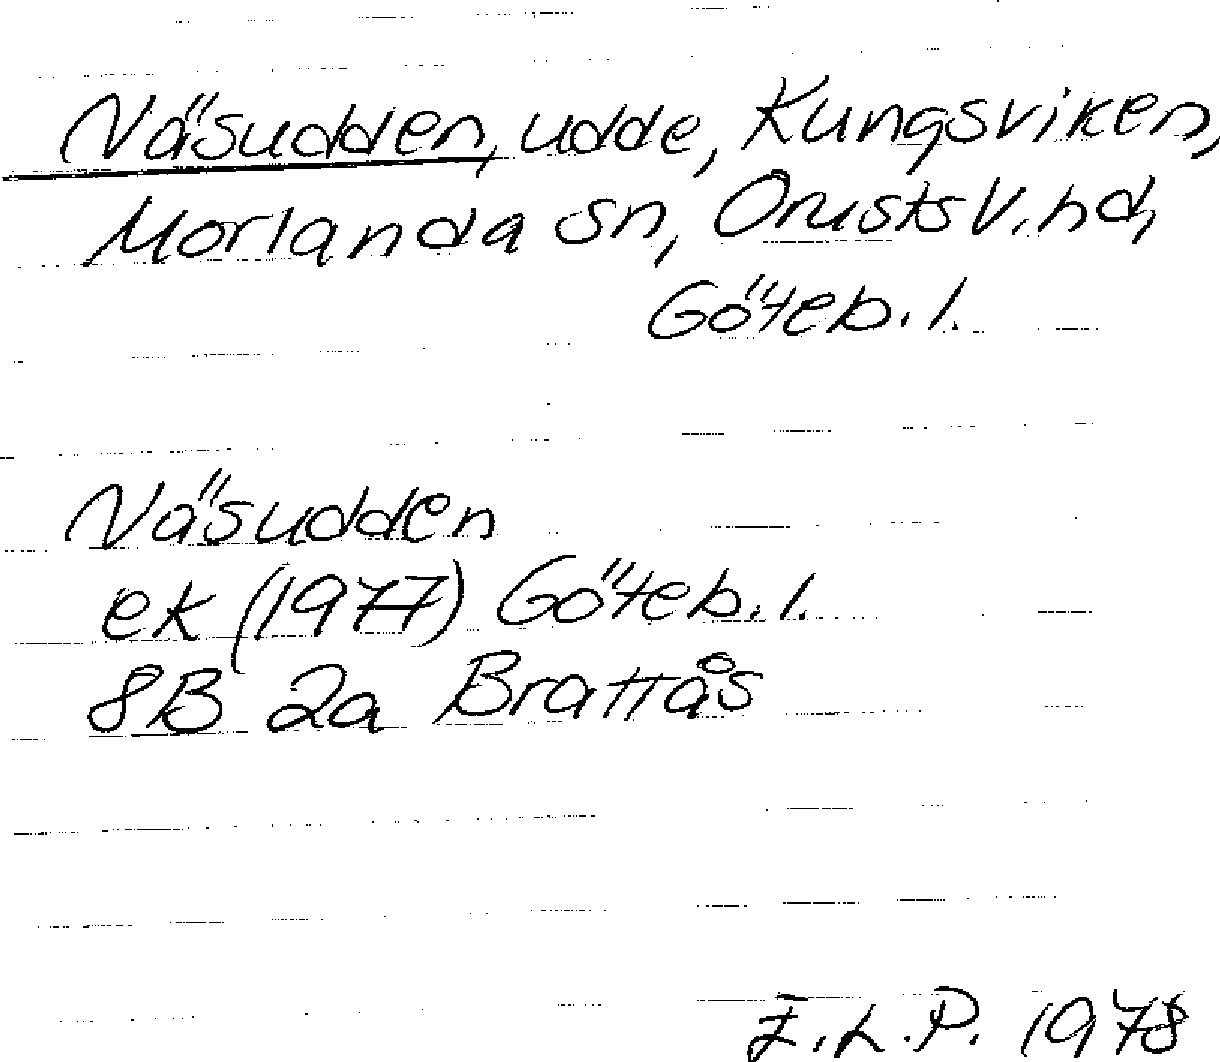 Näsudden, udde, Kungsviken,
Morlanda sn, Orusts V. hd,
Göteb. l.
Näsudden
ek (1977) Göteb. l.
8B 2a Brattås
E.L.P. 1978